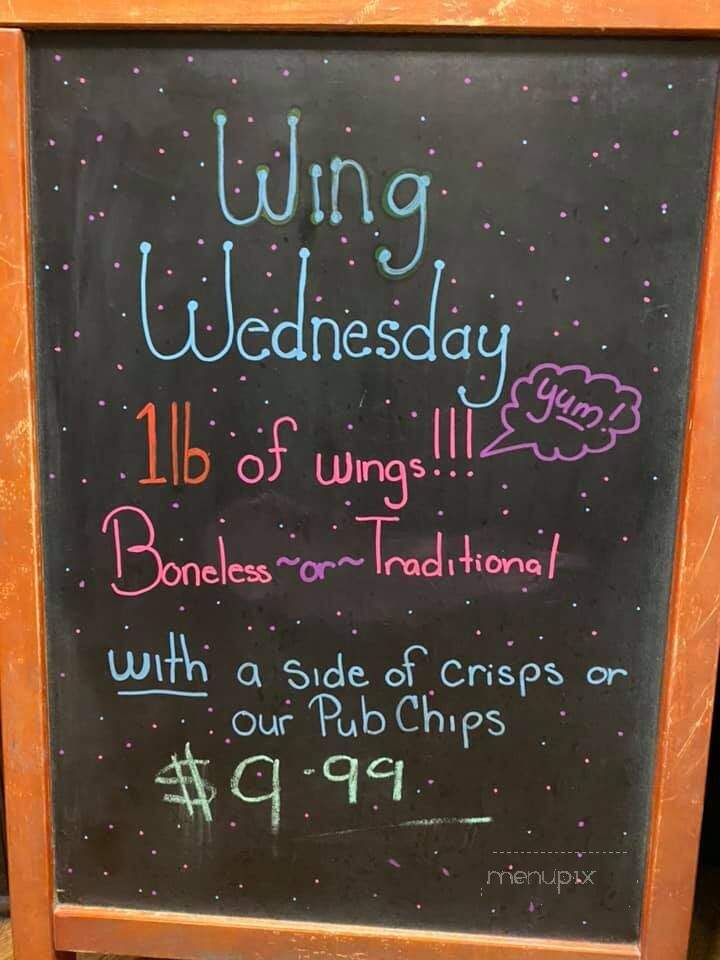 Wing
Wednesday
yum!
1lb of wings!!!
Boneless ~or~ Traditional
with a side of crisps or
our Pub Chips
$9.99
menupix